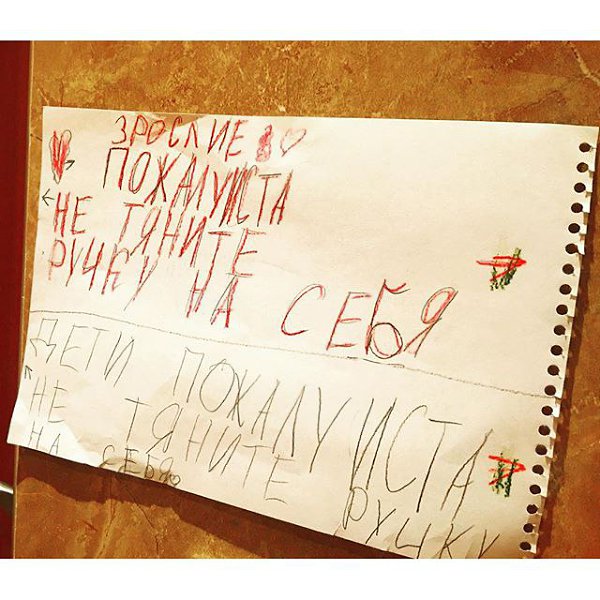 ЗРОСЛИЕ
ПОЖАЛУИСТА
НЕ ТЯНИТЕ
РУЧКУ НА СЕБЯ
ДЕТИ ПОЖАЛУИСТА
НЕ ТЯНИТЕ РУЧКУ
НА СЕБЯ